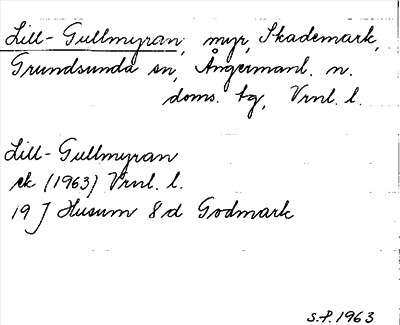 Lill-Gullmyran, myr, Skademark,
Grundsunda sn, Ångermanl. n.
doms. tg, Vrnl. l.
Lill-Gullmyran
ek (1963) Vrnl. l.
19 J Husum 8d Godmark
S.P. 1963